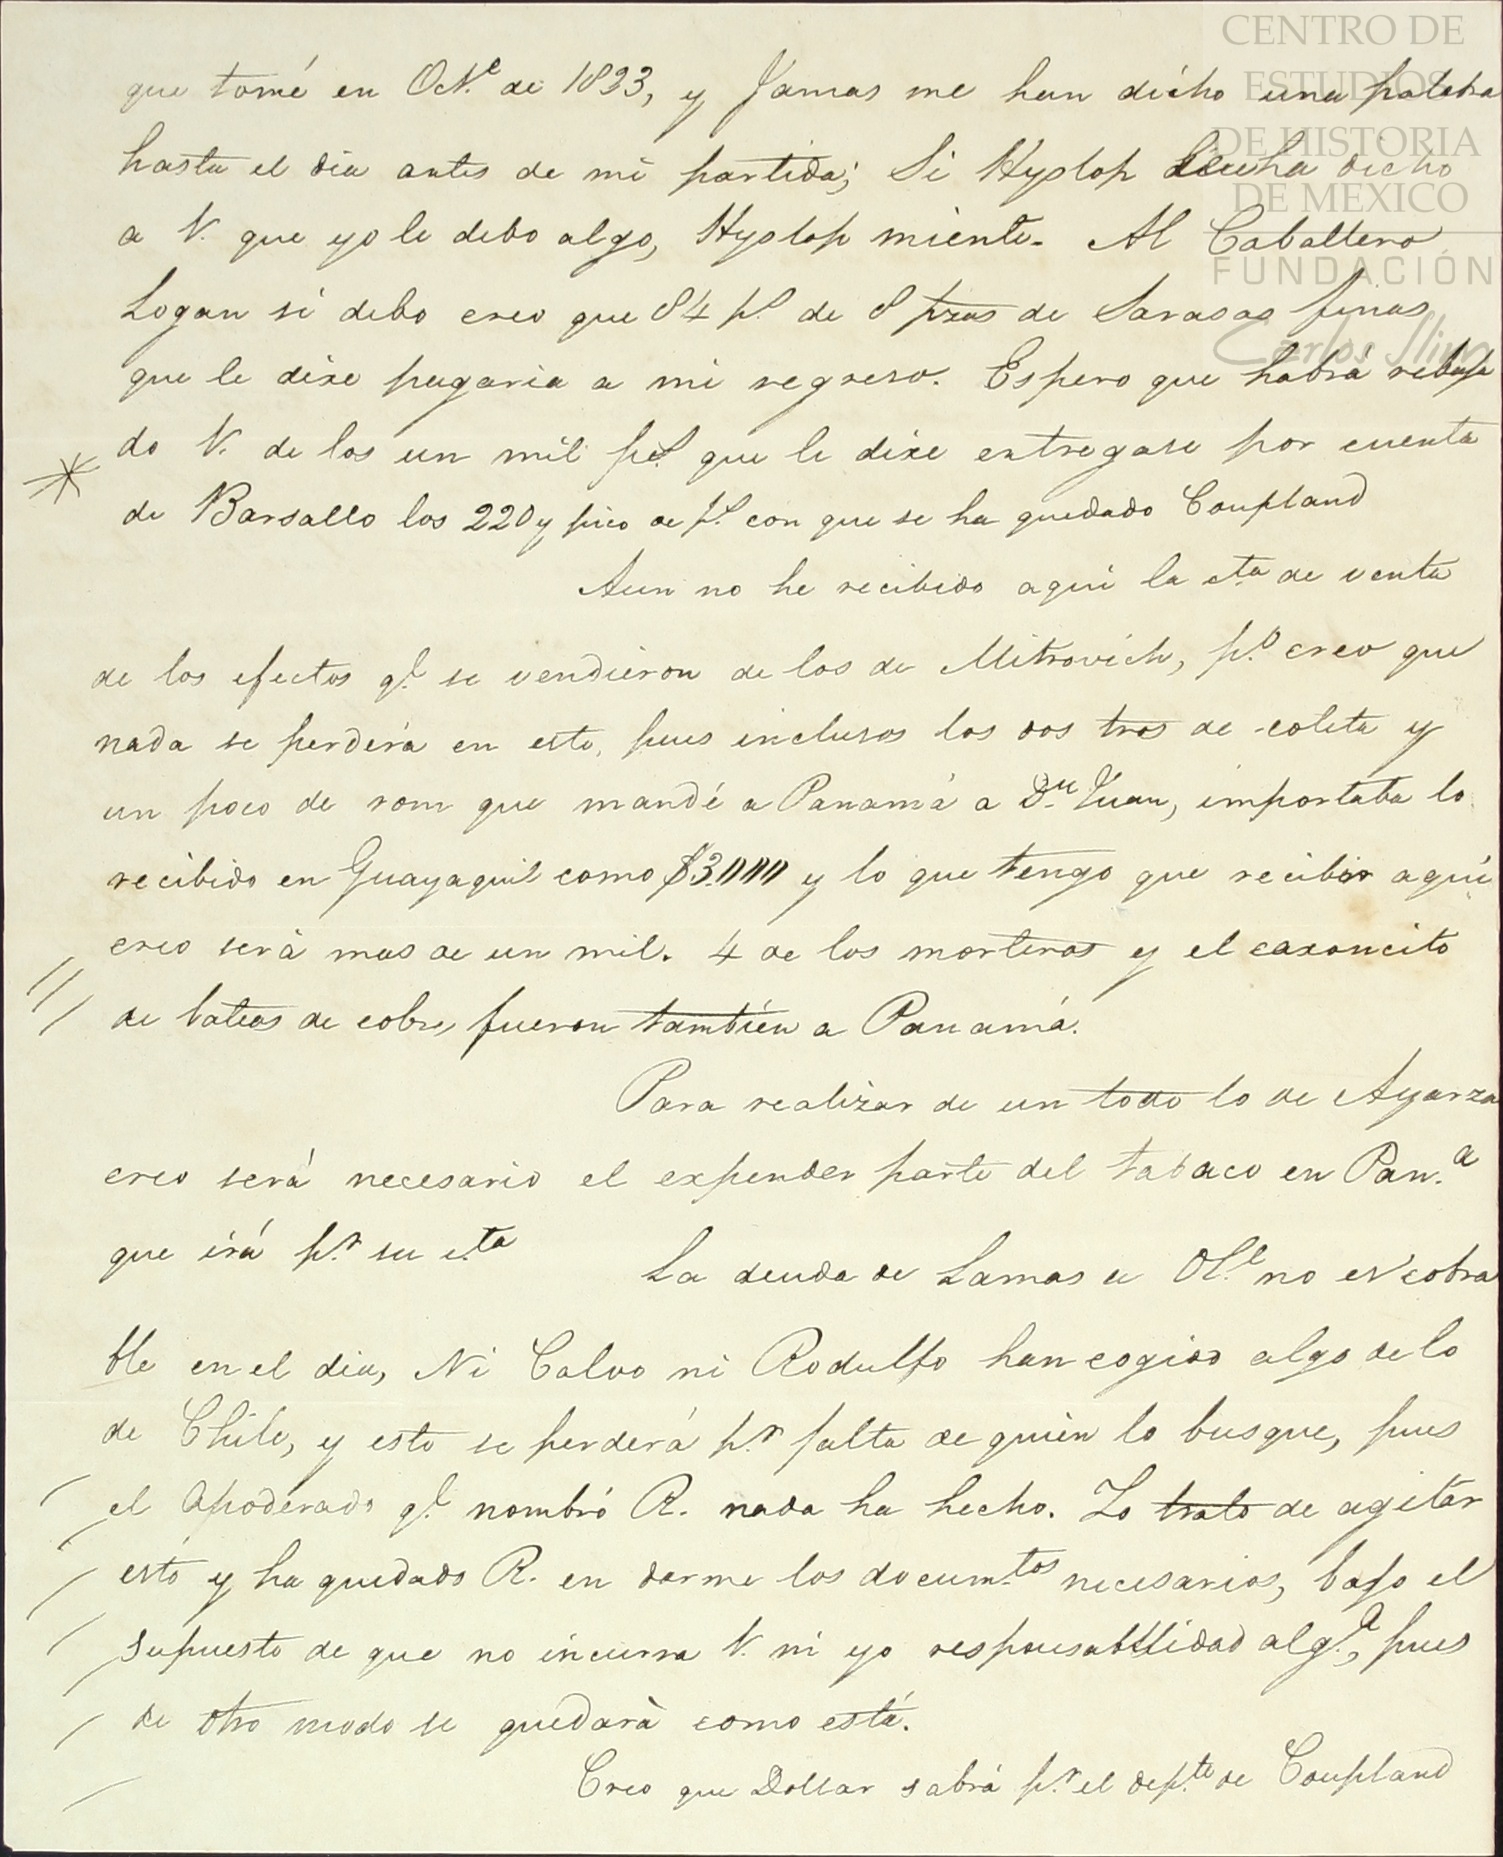 CENTRO DE
ESTUDIOS
DE HISTORIA
DE MEXICO
FUNDACIÓN
Carlos Slim
que tomé en Oct.e de 1823, y Jamas me han dicho una palabra
hasta el dia antes de mi partida; Si Hyslop ha dicho
a V. que yo le debo algo, Hyslop miente. Al Caballero
Logan si debo creo que 84 p.s de 8 pzas de Sarasas finas
que le dixe pagaria a mi regreso. Espero que habrá rebaja
do V. de los un mil ps. que le dixe entregase por cuenta
de Barsallo los 220 y pico de p.s con que se ha quedado Coupland
Aun no he recibido aqui la cta de venta
de los efectos q.e se vendieron de los de Mitrovich, p.o creo que
nada se perderá en esto, pues inclusos los dos tros de coleta y
un poco de rom que mandé a Panamá a Dn Juan, importaba lo
recibido en Guayaquil como $3.000 y lo que tengo que recibir aqui
creo será mas de un mil. 4 de los morteros y el caxoncito
de bateas de cobre, fueron también a Panamá.
Para realizar de un todo lo de Ayarza
creo será necesario el expender parte del tabaco en Pan.a
que irá p.r su c.ta
La deuda de Lamas u Ol.e no es cobra
ble en el dia, Ni Calvo ni Rodulfo han cogido algo de lo
de Chile, y esto se perderá p.r falta de quien lo busque, pues
el Apoderado q.e nombró R. nada ha hecho. Yo trato de agitar
esto y ha quedado R. en darme los documtos necesarios, bajo el
supuesto de que no incurra V. ni yo responsabilidad alg.a, pues
de otro modo se quedará como está.
Creo que Dollar sabrá p.r el dep.te de Coupland